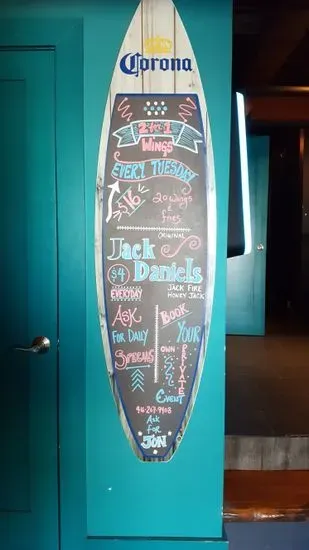 Corona
2-for-1
WINGS
EVERY TUESDAY
$16
20 wings
&
fries
ORIGINAL
Jack
Daniels
$4
EVERYDAY
JACK FIRE
HONEY JACK
ASK
FOR DAILY
SPECIALS
BOOK
YOUR
OWN
PRIVATE
EVENT
416-263-9408
Ask
for
JON